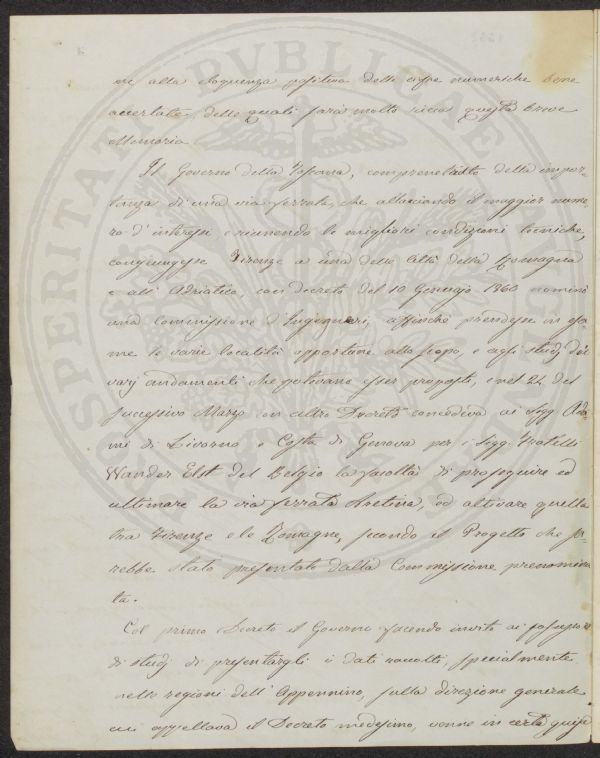 ne alla eloquenza positiva delle cifre numeriche bene
accertate, delle quali sarà molto ricca questa breve
Memoria
Il Governo della Toscana, compenetrato della impor-
tanza di una via ferrata, che allacciando il maggior nume
ro d'interessi e riunendo le migliori condizioni tecniche,
congiungesse Firenze a una delle Città della Romagna
e all'Adriatico, con decreto del 10 Gennajo 1860 nominò
una Commissione d'Ingegneri, affinchè prendesse in esa
me le varie località opportune allo scopo, e agli studj dei
varj andamenti che potevano esser proposti, e nel 24 del
successivo Marzo con altro Decreto concedeva ai Sigg. Ada
mi di Livorno e Costa di Genova per i Sigg. Fratelli
Wander Elst del Belgio la facoltà di proseguire ed
ultimare la via ferrata Aretina, ed attivare quella
tra Firenze e le Romagne, secondo il Progetto che sa-
rebbe stato presentato dalla Commissione prenomina
ta.
Col primo Decreto il Governo facendo invito ai possessori
di studj di presentargli i dati raccolti, specialmente
nelle regioni dell'Appennino, sulla direzione generale
cui appellava il Decreto medesimo, venne in certa guisa
PVBLICAE